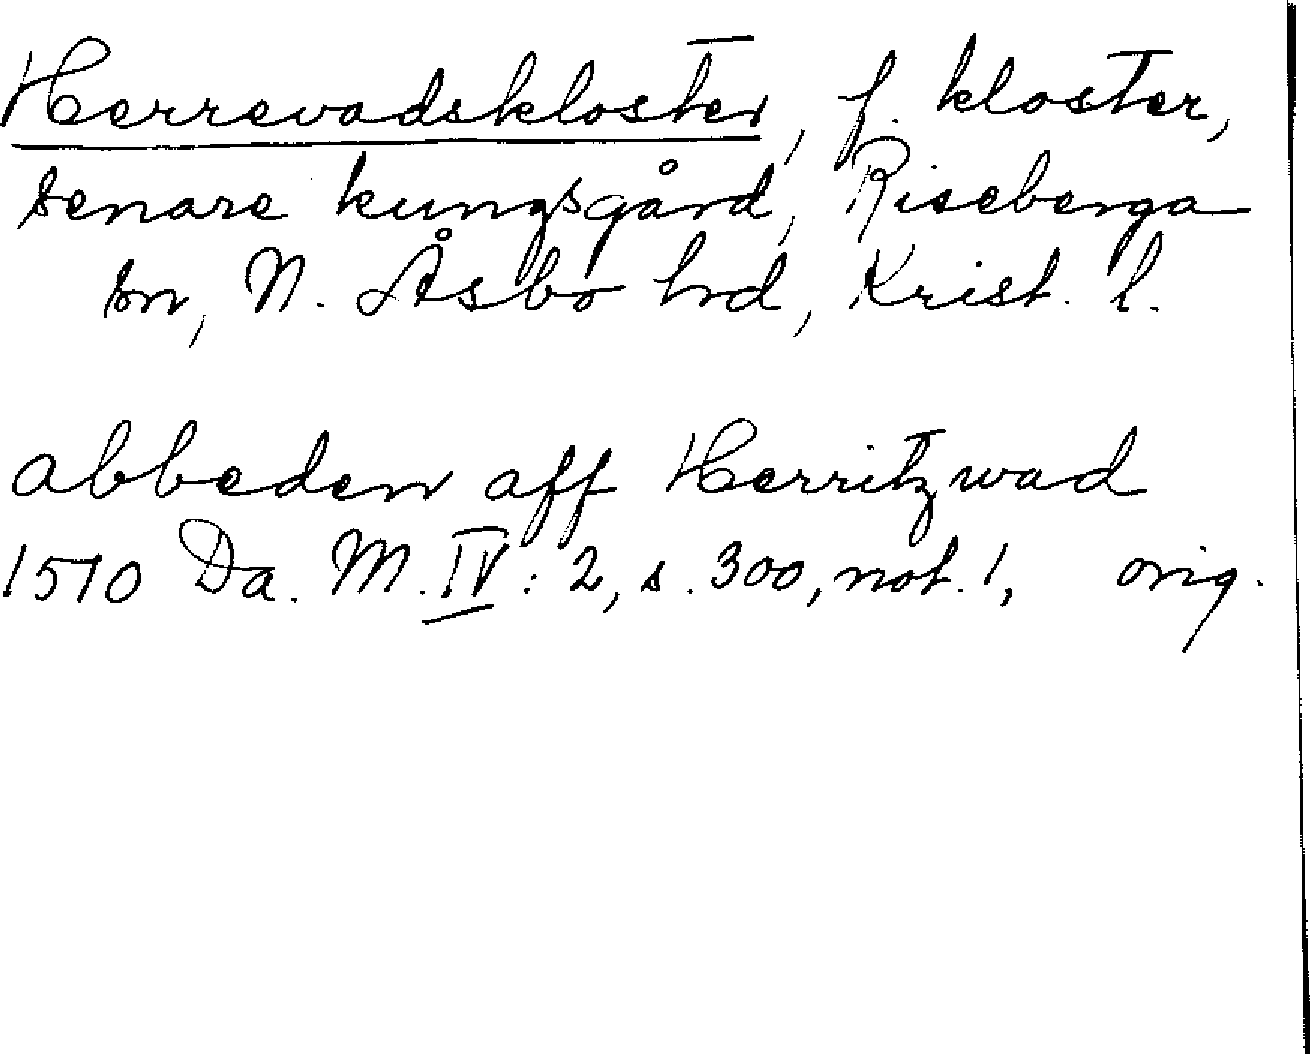 Herrevadskloster, f. kloster,
senare kungsgård, Riseberga
sn, N. Åsbo hrd, Krist. l.
abbeden aff Herritzwad
1510 Da. M. IV: 2, s. 300, not. 1, orig.